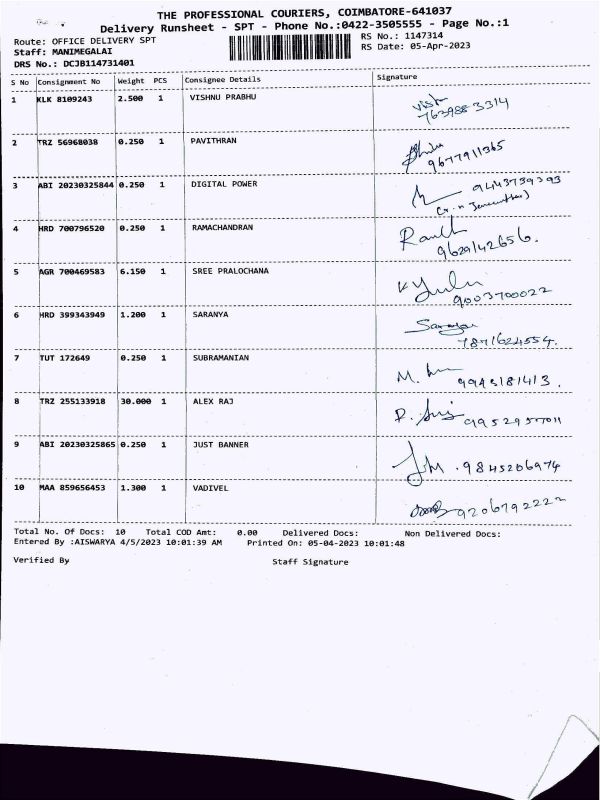 THE PROFESSIONAL COURIERS, COIMBATORE-641037
Delivery Runsheet - SPT - Phone No.:0422-3505555 - Page No.:1
Route: OFFICE DELIVERY SPT RS No.: 1147314
Staff: MANIMEGALAI RS Date: 05-Apr-2023
DRS No.: DCJB114731401
S No Consignment No Weight PCS Consignee Details Signature
1 KLK 8109243 2.500 1 VISHNU PRABHU
7639883314
2 TRZ 56968038 0.250 1 PAVITHRAN
9677911365
3 ABI 20230325844 0.250 1 DIGITAL POWER 9443739393
4 HRD 700796520 0.250 1 RAMACHANDRAN
9629142656.
5 AGR 700469583 6.150 1 SREE PRALOCHANA
9003700022
6 HRD 399343949 1.200 1 SARANYA
7871624554.
7 TUT 172649 0.250 1 SUBRAMANIAN
9943181413.
8 TRZ 255133918 30.000 1 ALEX RAJ
9952957011
9 ABI 20230325865 0.250 1 JUST BANNER
9845206974
10 MAA 859656453 1.300 1 VADIVEL
9206792222
Total No. Of Docs: 10 Total COD Amt: 0.00 Delivered Docs: Non Delivered Docs:
Entered By :AISWARYA 4/5/2023 10:01:39 AM Printed On: 05-04-2023 10:01:48
Verified By Staff Signature